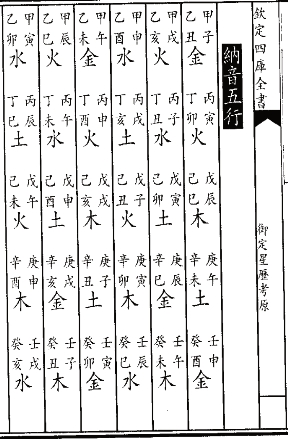 欽定四庫全書
御定星歷考原
納音五行
甲子乙丑金 丙寅丁卯火 戊辰己巳木 庚午辛未土 壬申癸酉金
甲戌乙亥火 丙子丁丑水 戊寅己卯土 庚辰辛巳金 壬午癸未木
甲申乙酉水 丙戌丁亥土 戊子己丑火 庚寅辛卯木 壬辰癸巳水
甲午乙未金 丙申丁酉火 戊戌己亥木 庚子辛丑土 壬寅癸卯金
甲辰乙巳火 丙午丁未水 戊申己酉土 庚戌辛亥金 壬子癸丑木
甲寅乙卯水 丙辰丁巳土 戊午己未火 庚申辛酉木 壬戌癸亥水